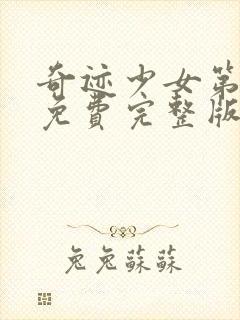 奇迹少女第
免費完整版
兔兔蘇蘇